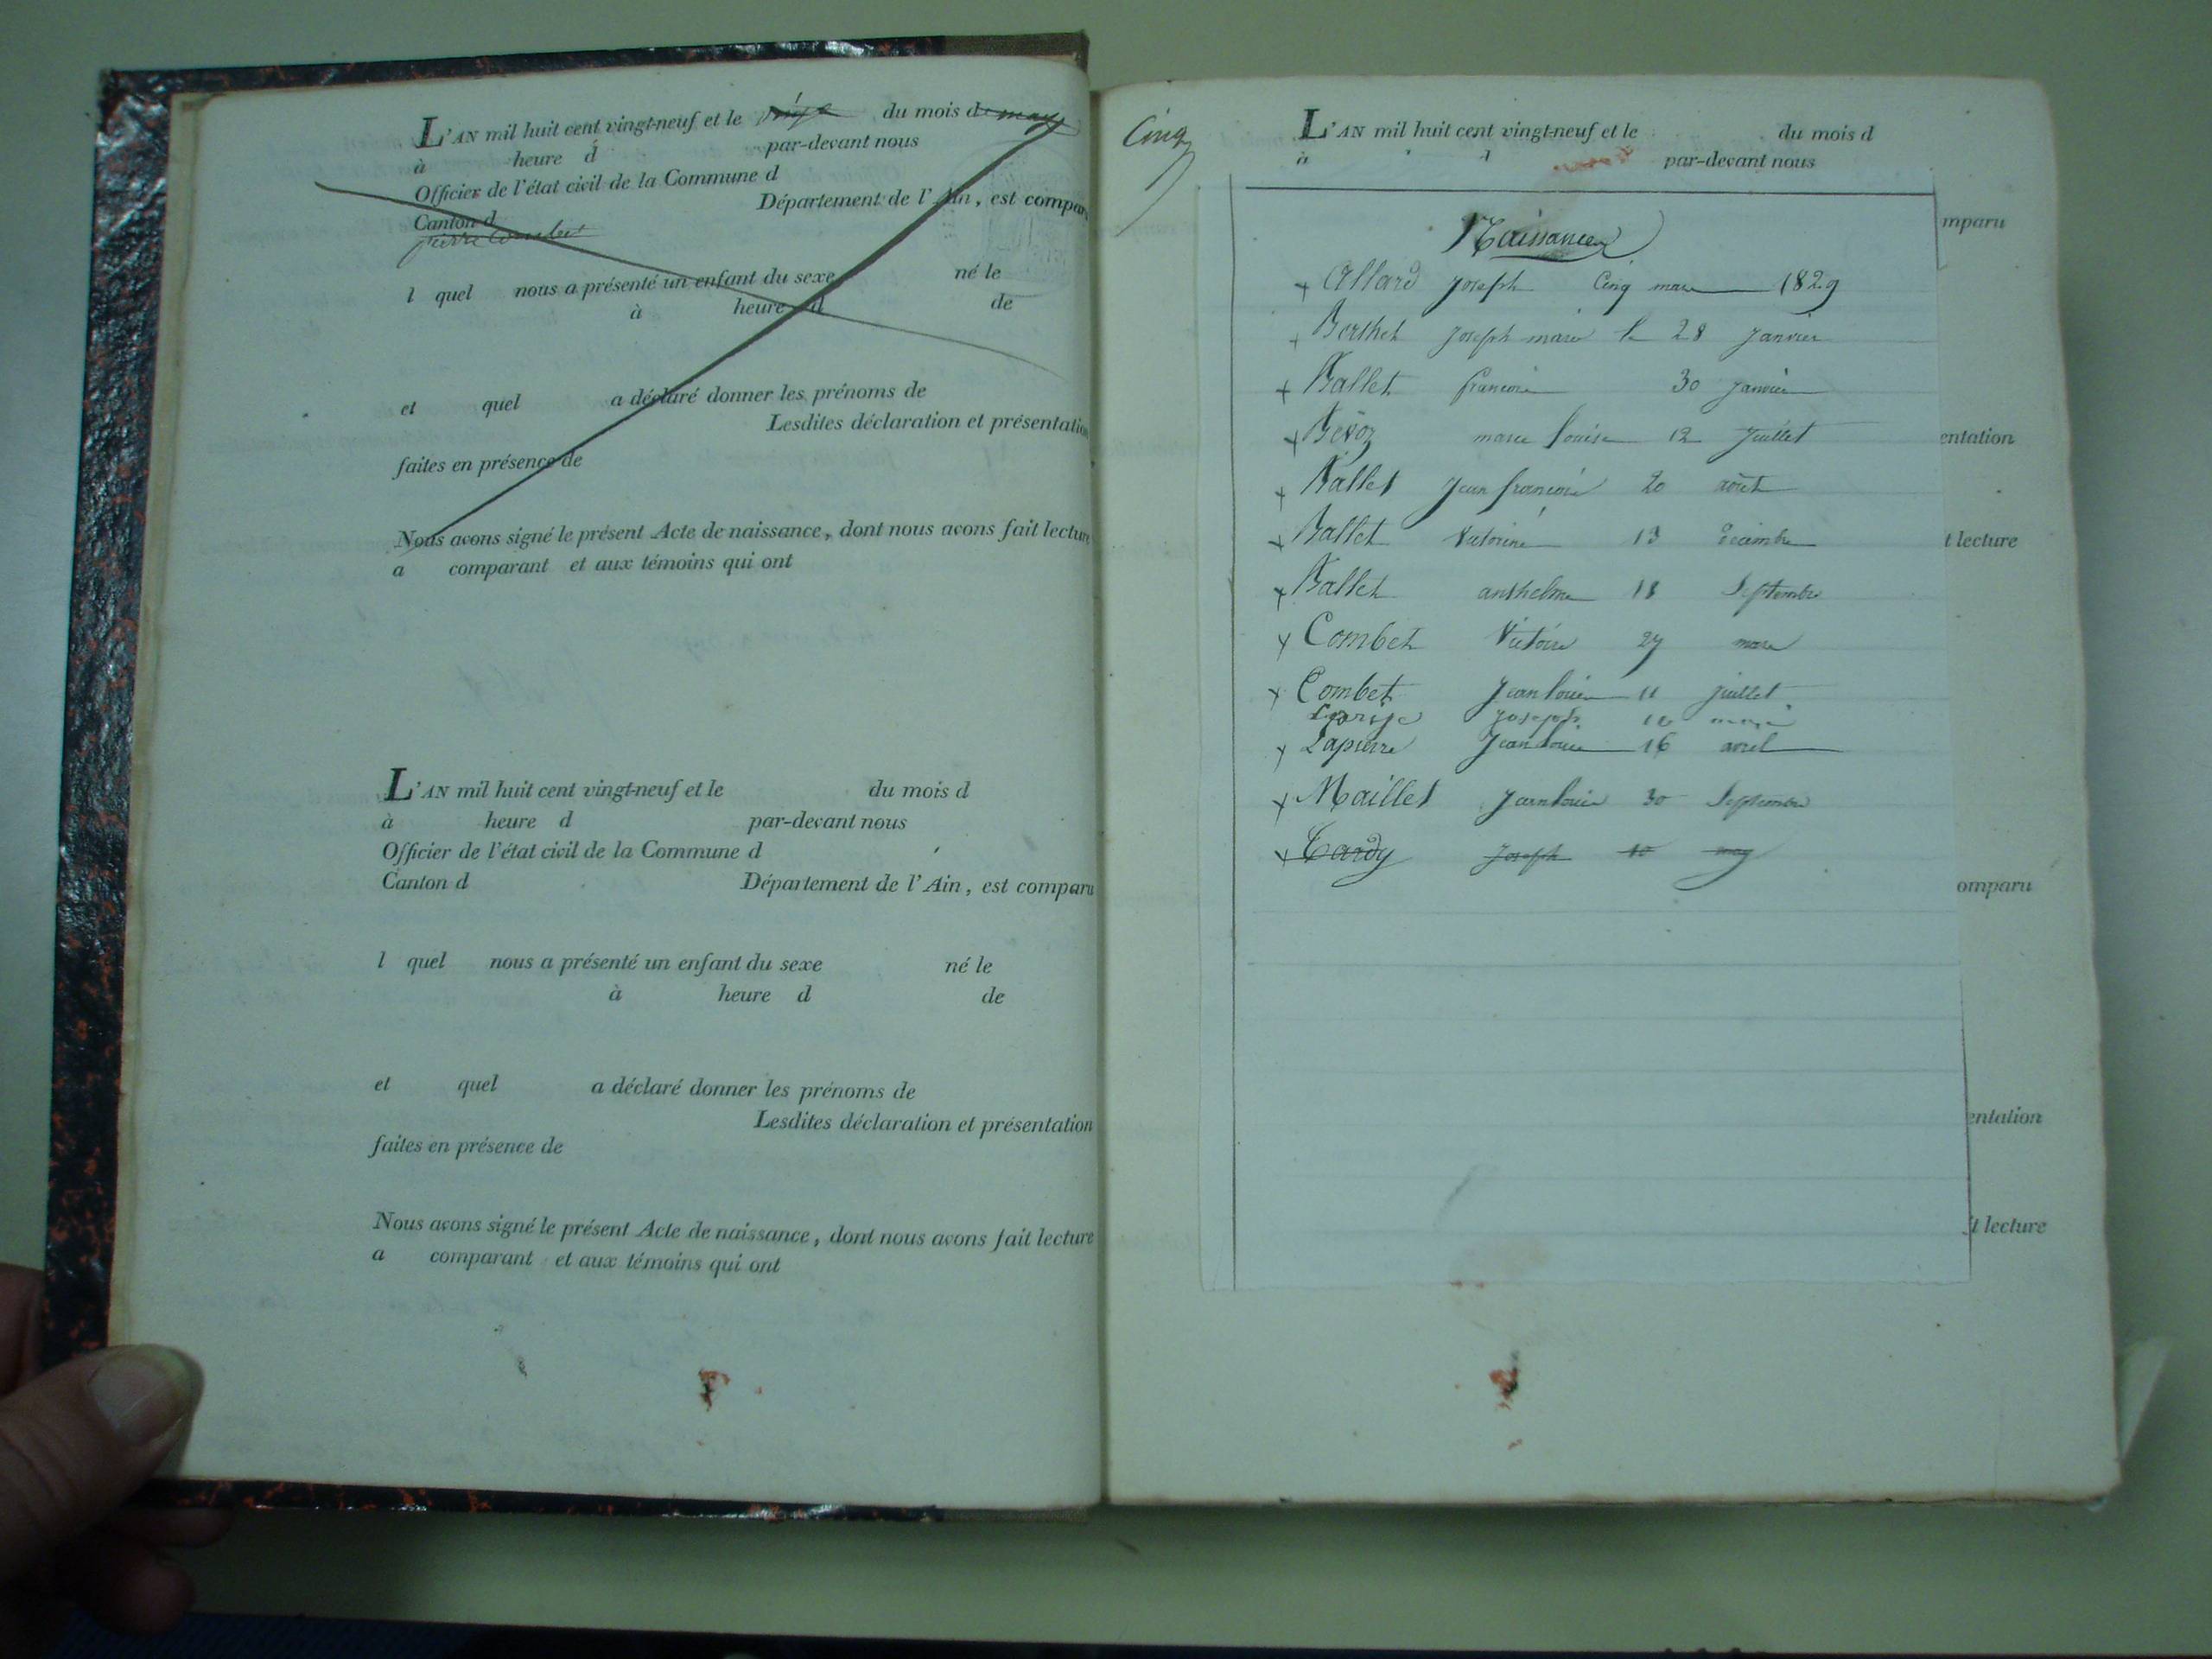 L'AN mil huit cent vingt-neuf et le seize du mois de may
à heure d par-devant nous
Officier de l'état civil de la Commune d
Canton d Département de l'Ain, est comparu
pierre Combet
l quel nous a présenté un enfant du sexe né le
à heure d de
et quel a déclaré donner les prénoms de
Lesdites déclaration et présentation
faites en présence de
Nous avons signé le présent Acte de naissance, dont nous avons fait lecture
a comparant et aux témoins qui ont
L'AN mil huit cent vingt-neuf et le du mois d
à heure d par-devant nous
Officier de l'état civil de la Commune d
Canton d Département de l'Ain, est comparu
l quel nous a présenté un enfant du sexe né le
à heure d de
et quel a déclaré donner les prénoms de
Lesdites déclaration et présentation
faites en présence de
Nous avons signé le présent Acte de naissance, dont nous avons fait lecture
a comparant et aux témoins qui ont
Cinq
L'AN mil huit cent vingt-neuf et le du mois d
à d par-devant nous
mparu
Naissances
+ Allard joseph Cinq mars 1829
+ Berthet joseph marie le 28 janvier
+ Ballet francois 30 janvier
+ Bévoz marie louise 12 juillet
entation
+ Ballet jean francois 20 août
+ Ballet Victorine 13 décembre
t lecture
+ Ballet anthelme 18 Septembre
+ Combet Victoire 27 mars
+ Combet jean louis 11 juillet
joseph
+ Lapierre jean louis 16 avril
+ Maillet jean louis 30 Septembre
+ Tardy joseph 10 may
omparu
entation
t lecture